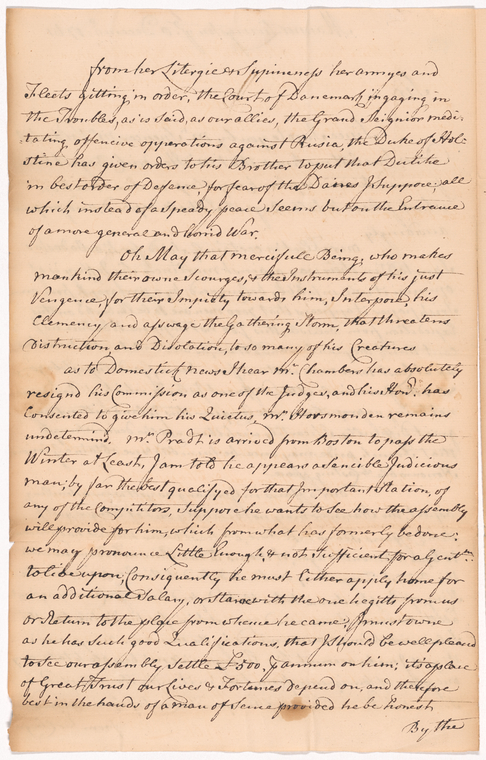 from her Litergie & Suppineness her armyes and
Fleets gitting in order, the Court of Danemark ingaging in
the Troubles, as is said, as our allies, the Grand Seignior medi-
tating offencive opperations against Rusia, the Duke of Hol-
stine has given orders to his Brother to put that Dutchie
in best order of Defence, for fear of the Danes I suppose; all
which instead of a speady peace Seems but on the Entrance
of a more general and horrid War.
Oh May that mercifull Being, who makes
mankind their owne Scourges, & the Instruments of his just
Vengence for their Impiety towards him, Interpond his
Clemency and asswage the Gathering Storm, that threatens
Distruction and Disolation, to so many of his Creatures
as to Domestick news I hear Mr. Chambers has absolutely
resignd his Commission as one of the Judges, and his Honr. has
Consented to give him his Quietus, Mr. Horsmonden remains
undetermind. Mr. Pradt is arrived from Boston to pass the
Winter at Least, I am told he appears a sencible Judicious
man; by far the best qualifyed for that Important Station, of
any of the Competitors, Suppose he wants to See how the assembly
will provide for him, which from what has formerly be done;
we may pronounce Little Enough, & not Sufficient for a Gentlm.
to live upon, Consiquently he must Either apply home for
an additional Salary, or Starve with the one he gitts from us
or Return to the place from whence he came; I must owne
as he has Such good Qualifications, that I Should be well pleased
to See our assembly Settle £500, p annum on him; its a place
of Great Trust our Lives & Fortunes depend on, and therefore
best in the hands of a man of Sence provided he be honest
By the